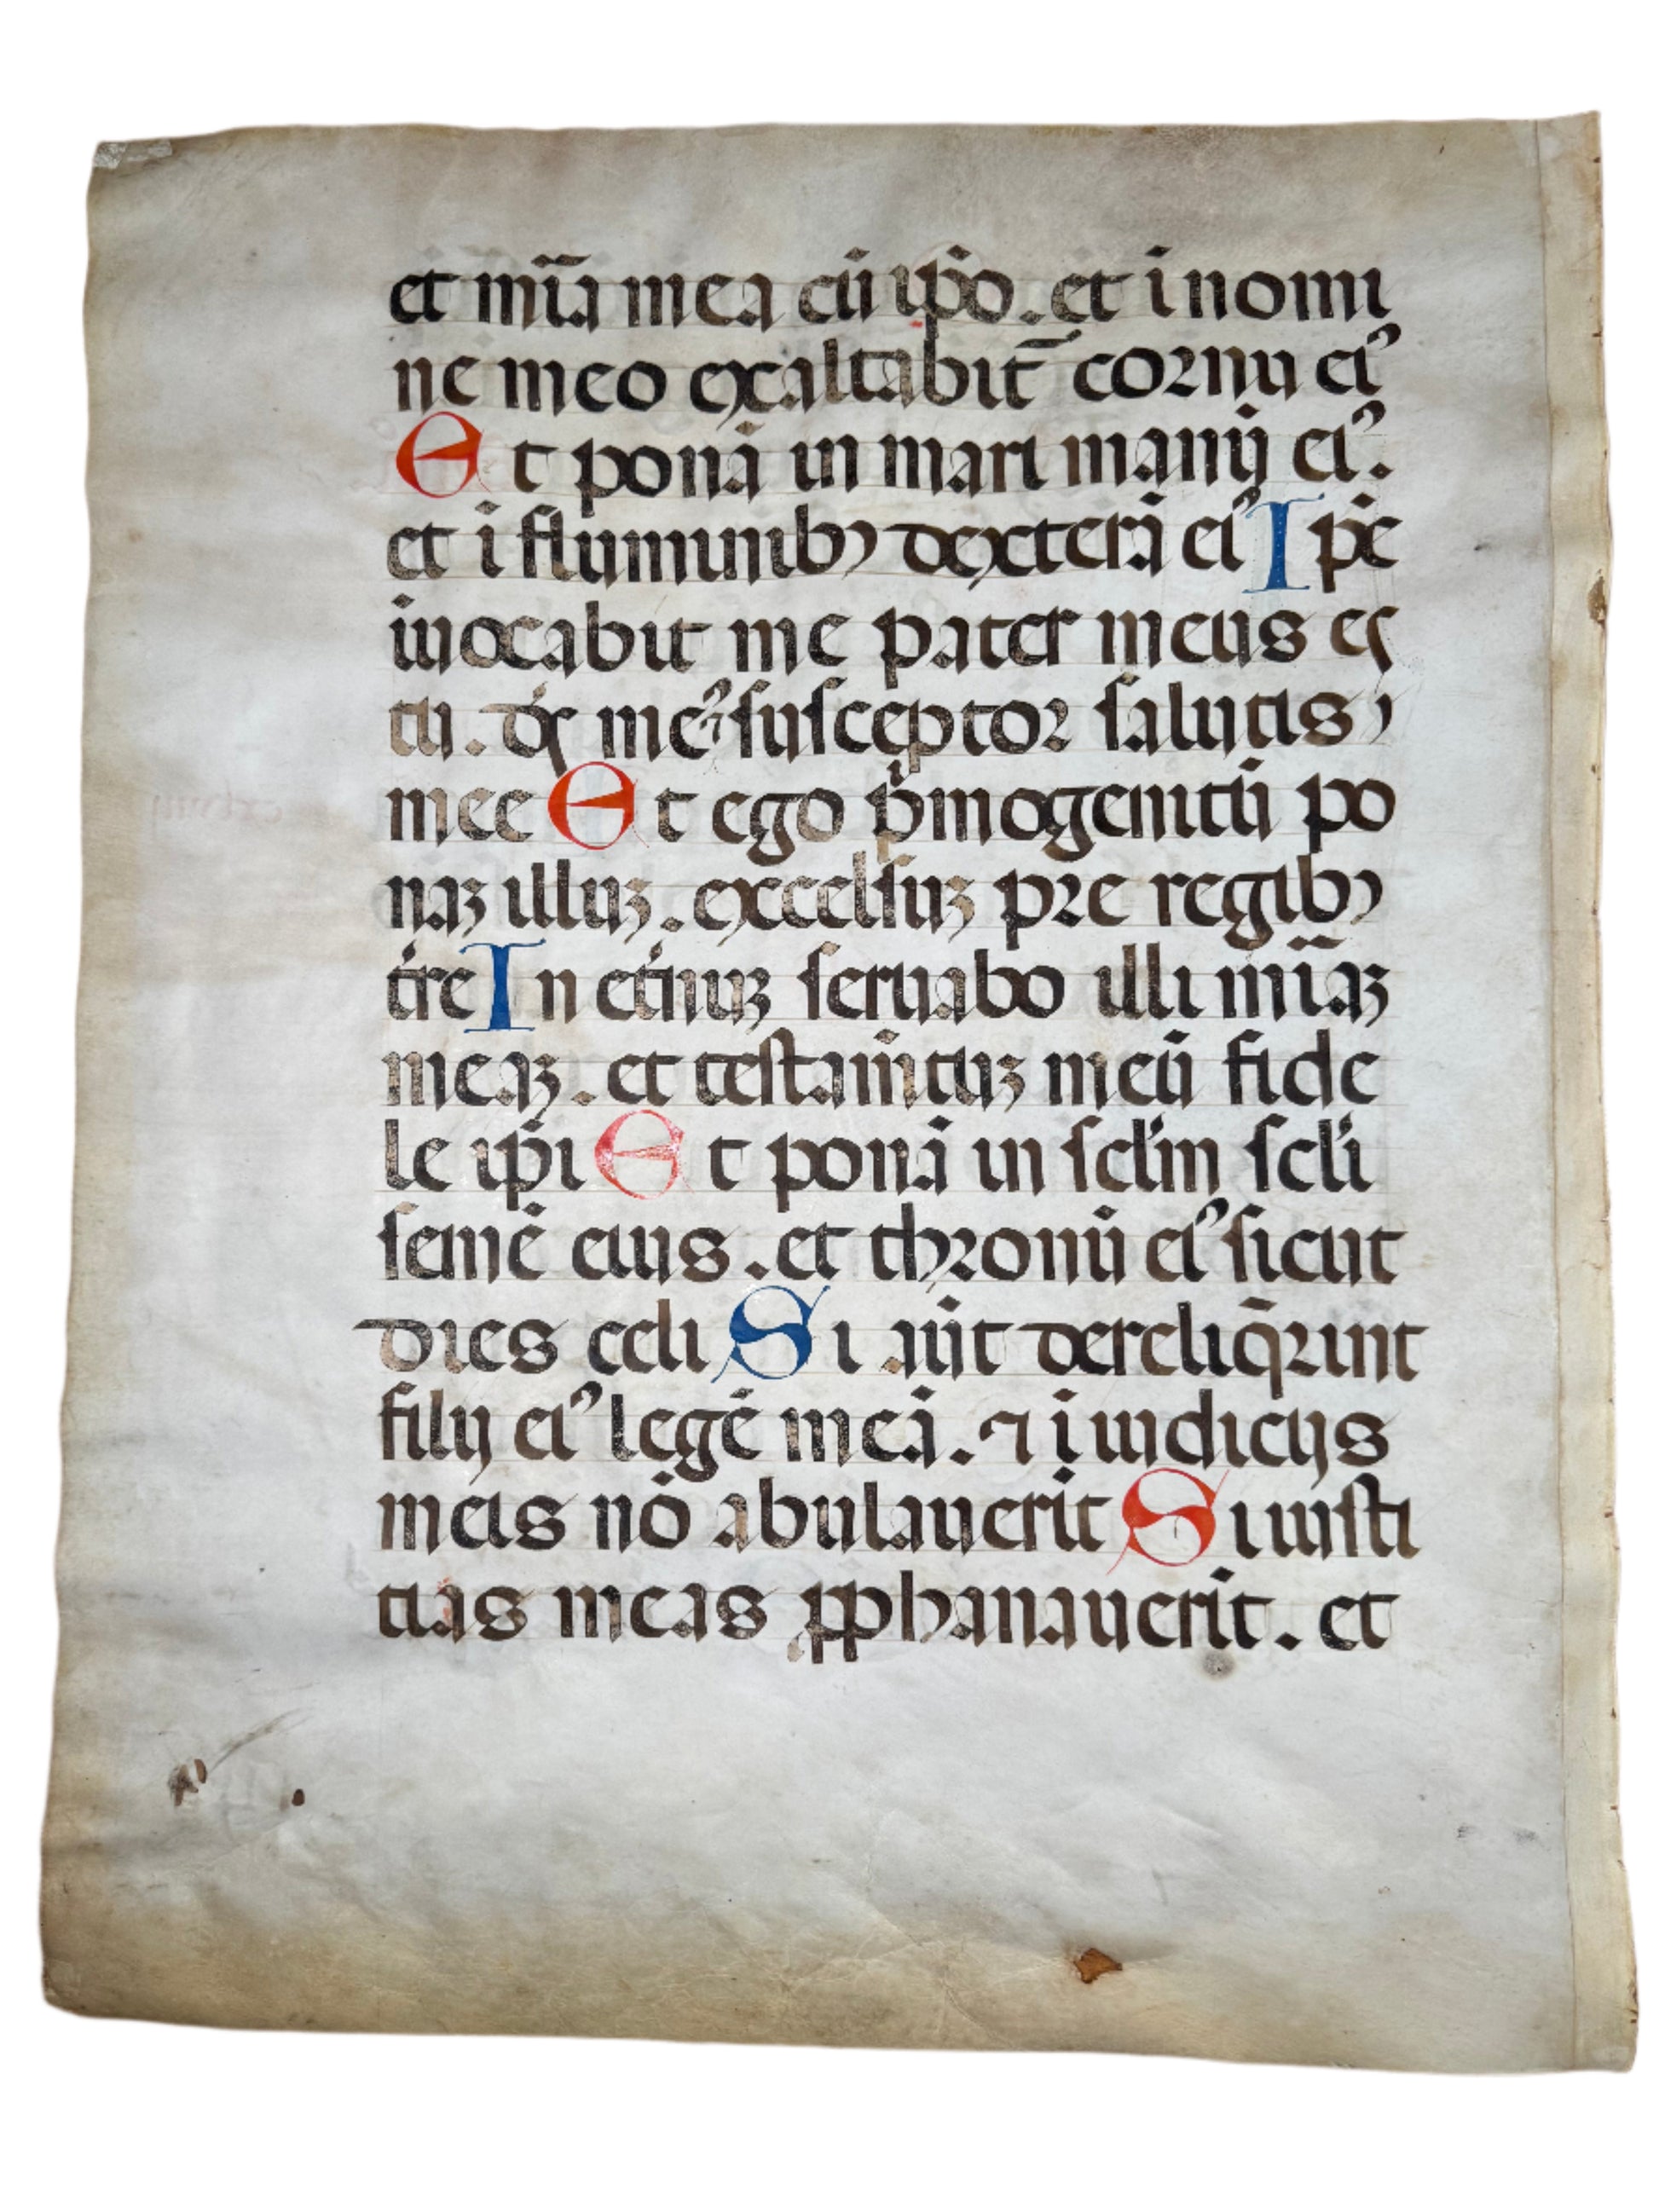 et mīa mea cū ip̄o. et i nomi
ne meo exaltabit̄ cornu eiꝰ
Et ponā in mari manū eiꝰ.
et i fluminibꝫ dexterā eiꝰ Ip̄e
iuocabit me pater meus es
tu. ds̄ meꝰ susceptor salutis
mee Et ego p̄mogenitū po
naꝫ illuꝫ. excelsuꝫ pre regibꝫ
t̄re In et̄nuꝫ seruabo illi mīaꝫ
meaꝫ. et testam̄tuꝫ meū fide
le ip̄i Et ponā in sclm̄ sclī
semē eius. et thronū eiꝰ sicut
dies celi Si aūt dereliq̄rint
filij eiꝰ legē meā. ⁊ i iudicijs
meis nō abulauerit Si iusti
tias meas ꝓphanauerit. et